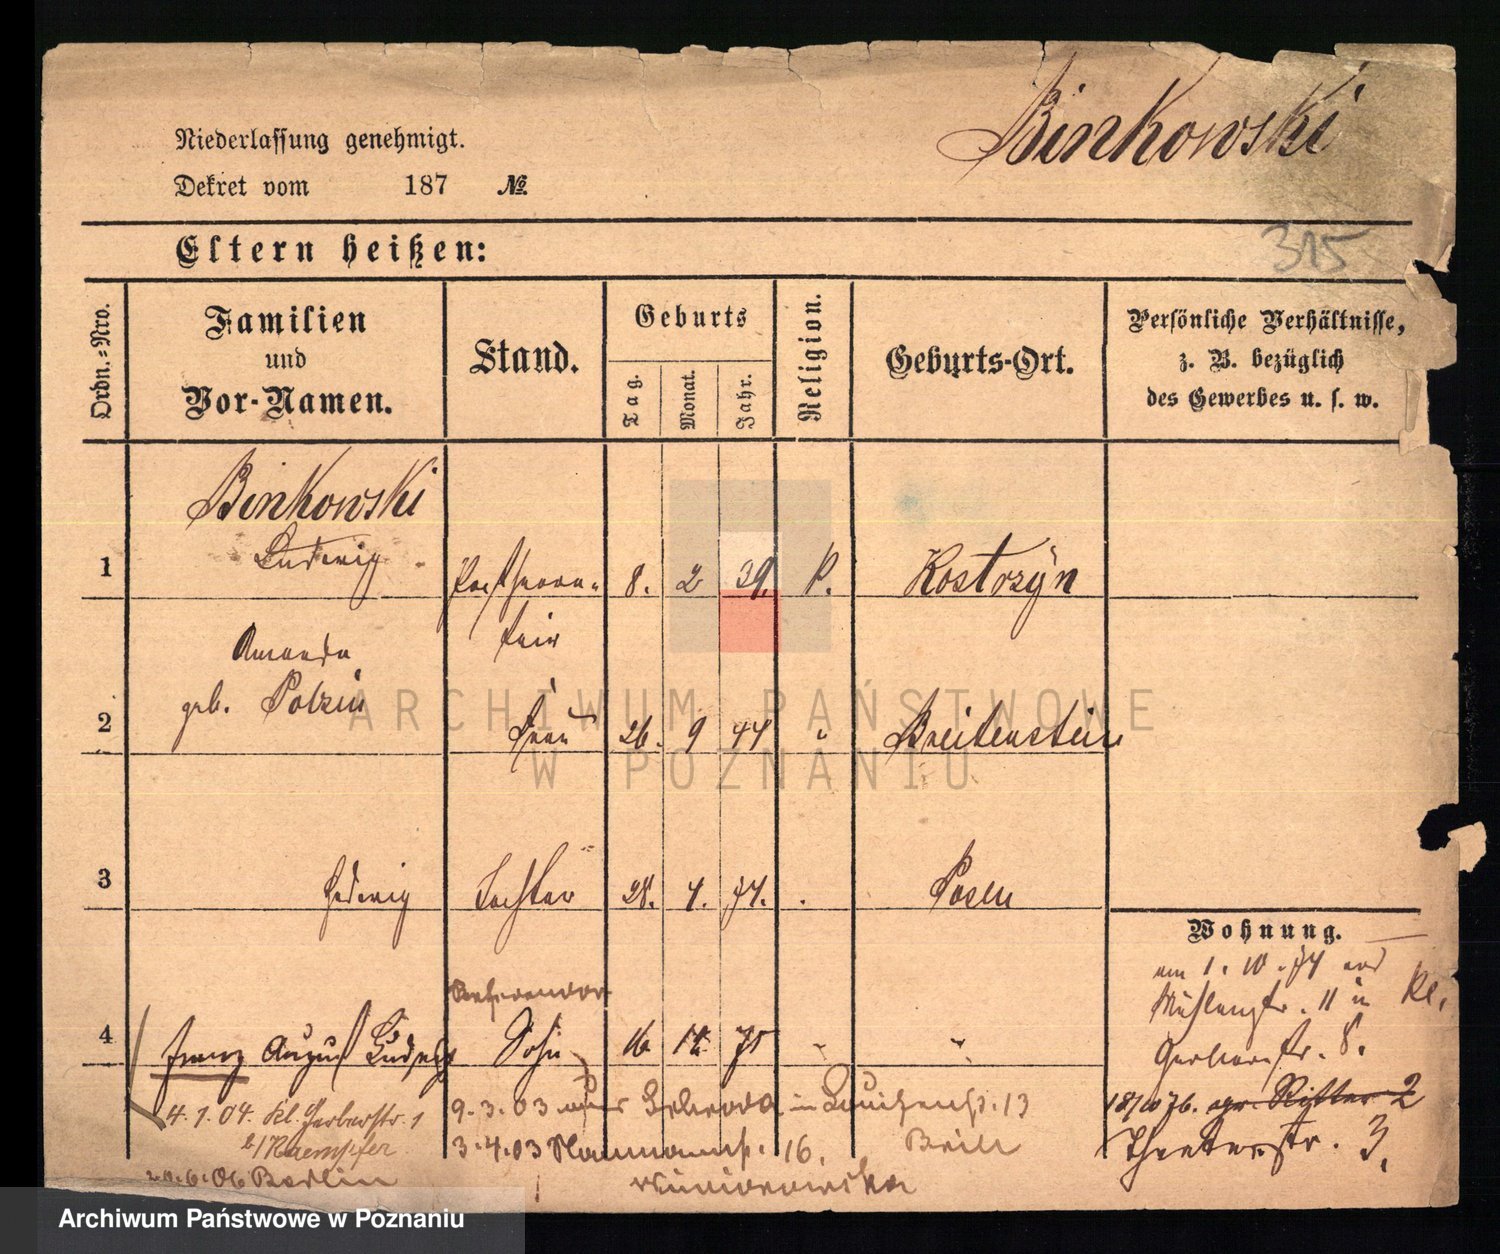 Binkowski
Niederlassung genehmigt.
Dekret vom 187 №.
Eltern heißen:
315
Ordn.-Nro.
Familien
und
Vor-Namen.
Stand.
Geburts
Tag.
Monat.
Jahr.
Religion.
Geburts-Ort.
Persönliche Verhältnisse,
z. B. bezüglich
des Gewerbes u. s. w.
Binkowski
1 Ludwig 8. 2 39. Kostrzyn
Amanda
2 geb. Polzin Frau 26. 9 44 Breitenstein
ARCHIWUM PAŃSTWOWE
W POZNANIU
3 Hedwig Tochter 28. 4. 74. Posen
Wohnung.
am 1. 10. 74 
Mühlenstr. 11 in Kl.
Gerberstr. 8.
Referendar
4 Franz August Ludwig Sohn 16 75
18/10 76. Ritter 2
Theaterstr. 3.
4.1.04. Kl. Gerberstr. 1
b/Kaempfer
20.6.06 Berlin
9.3.03 aus Schroda in Luisenstr. 13
Brill
3.4.03 Naumannstr. 16.
Archiwum Państwowe w Poznaniu